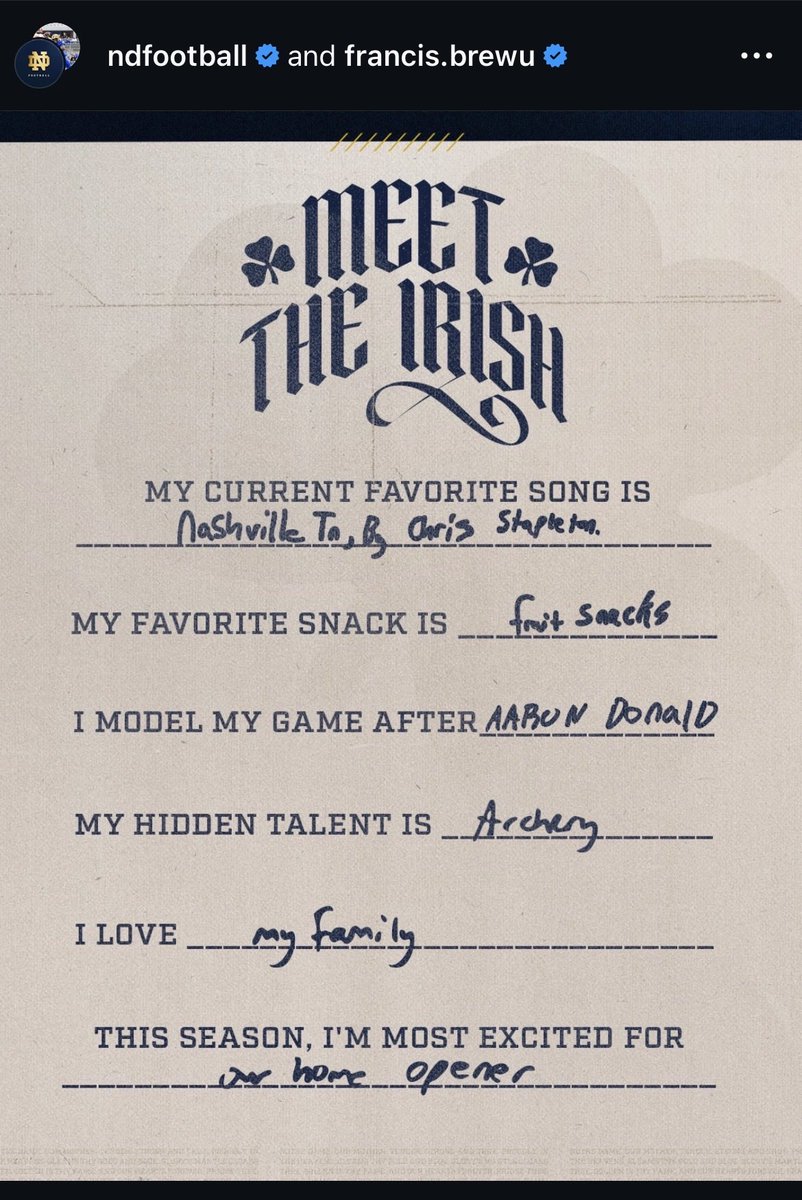 ndfootball and francis.brewu
MEET
THE IRISH
MY CURRENT FAVORITE SONG IS
Nashville Tn, By Chris Stapleton.
MY FAVORITE SNACK IS fruit snacks
I MODEL MY GAME AFTER AARON DONALD
MY HIDDEN TALENT IS Archery
I LOVE my family
THIS SEASON, I'M MOST EXCITED FOR
our home opener